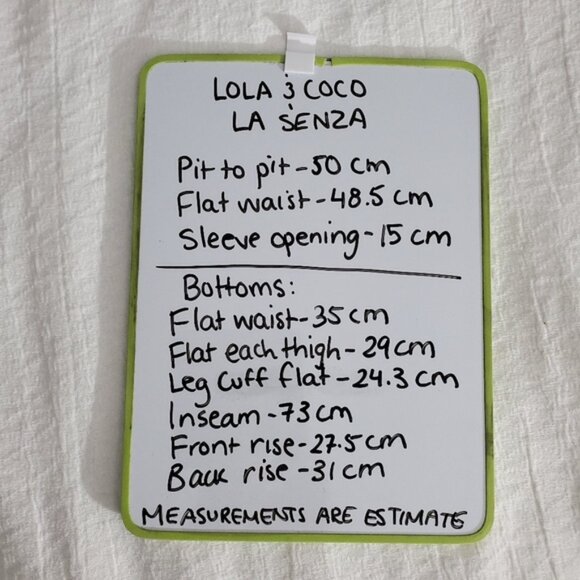 LOLA & COCO
LA SENZA
Pit to pit-50 cm
Flat waist-48.5 cm
Sleeve opening-15 cm
Bottoms:
Flat waist-35 cm
Flat each thigh-29 cm
Leg cuff flat-24.3 cm
Inseam-73 cm
Front rise-27.5 cm
Back rise-31 cm
MEASUREMENTS ARE ESTIMATE